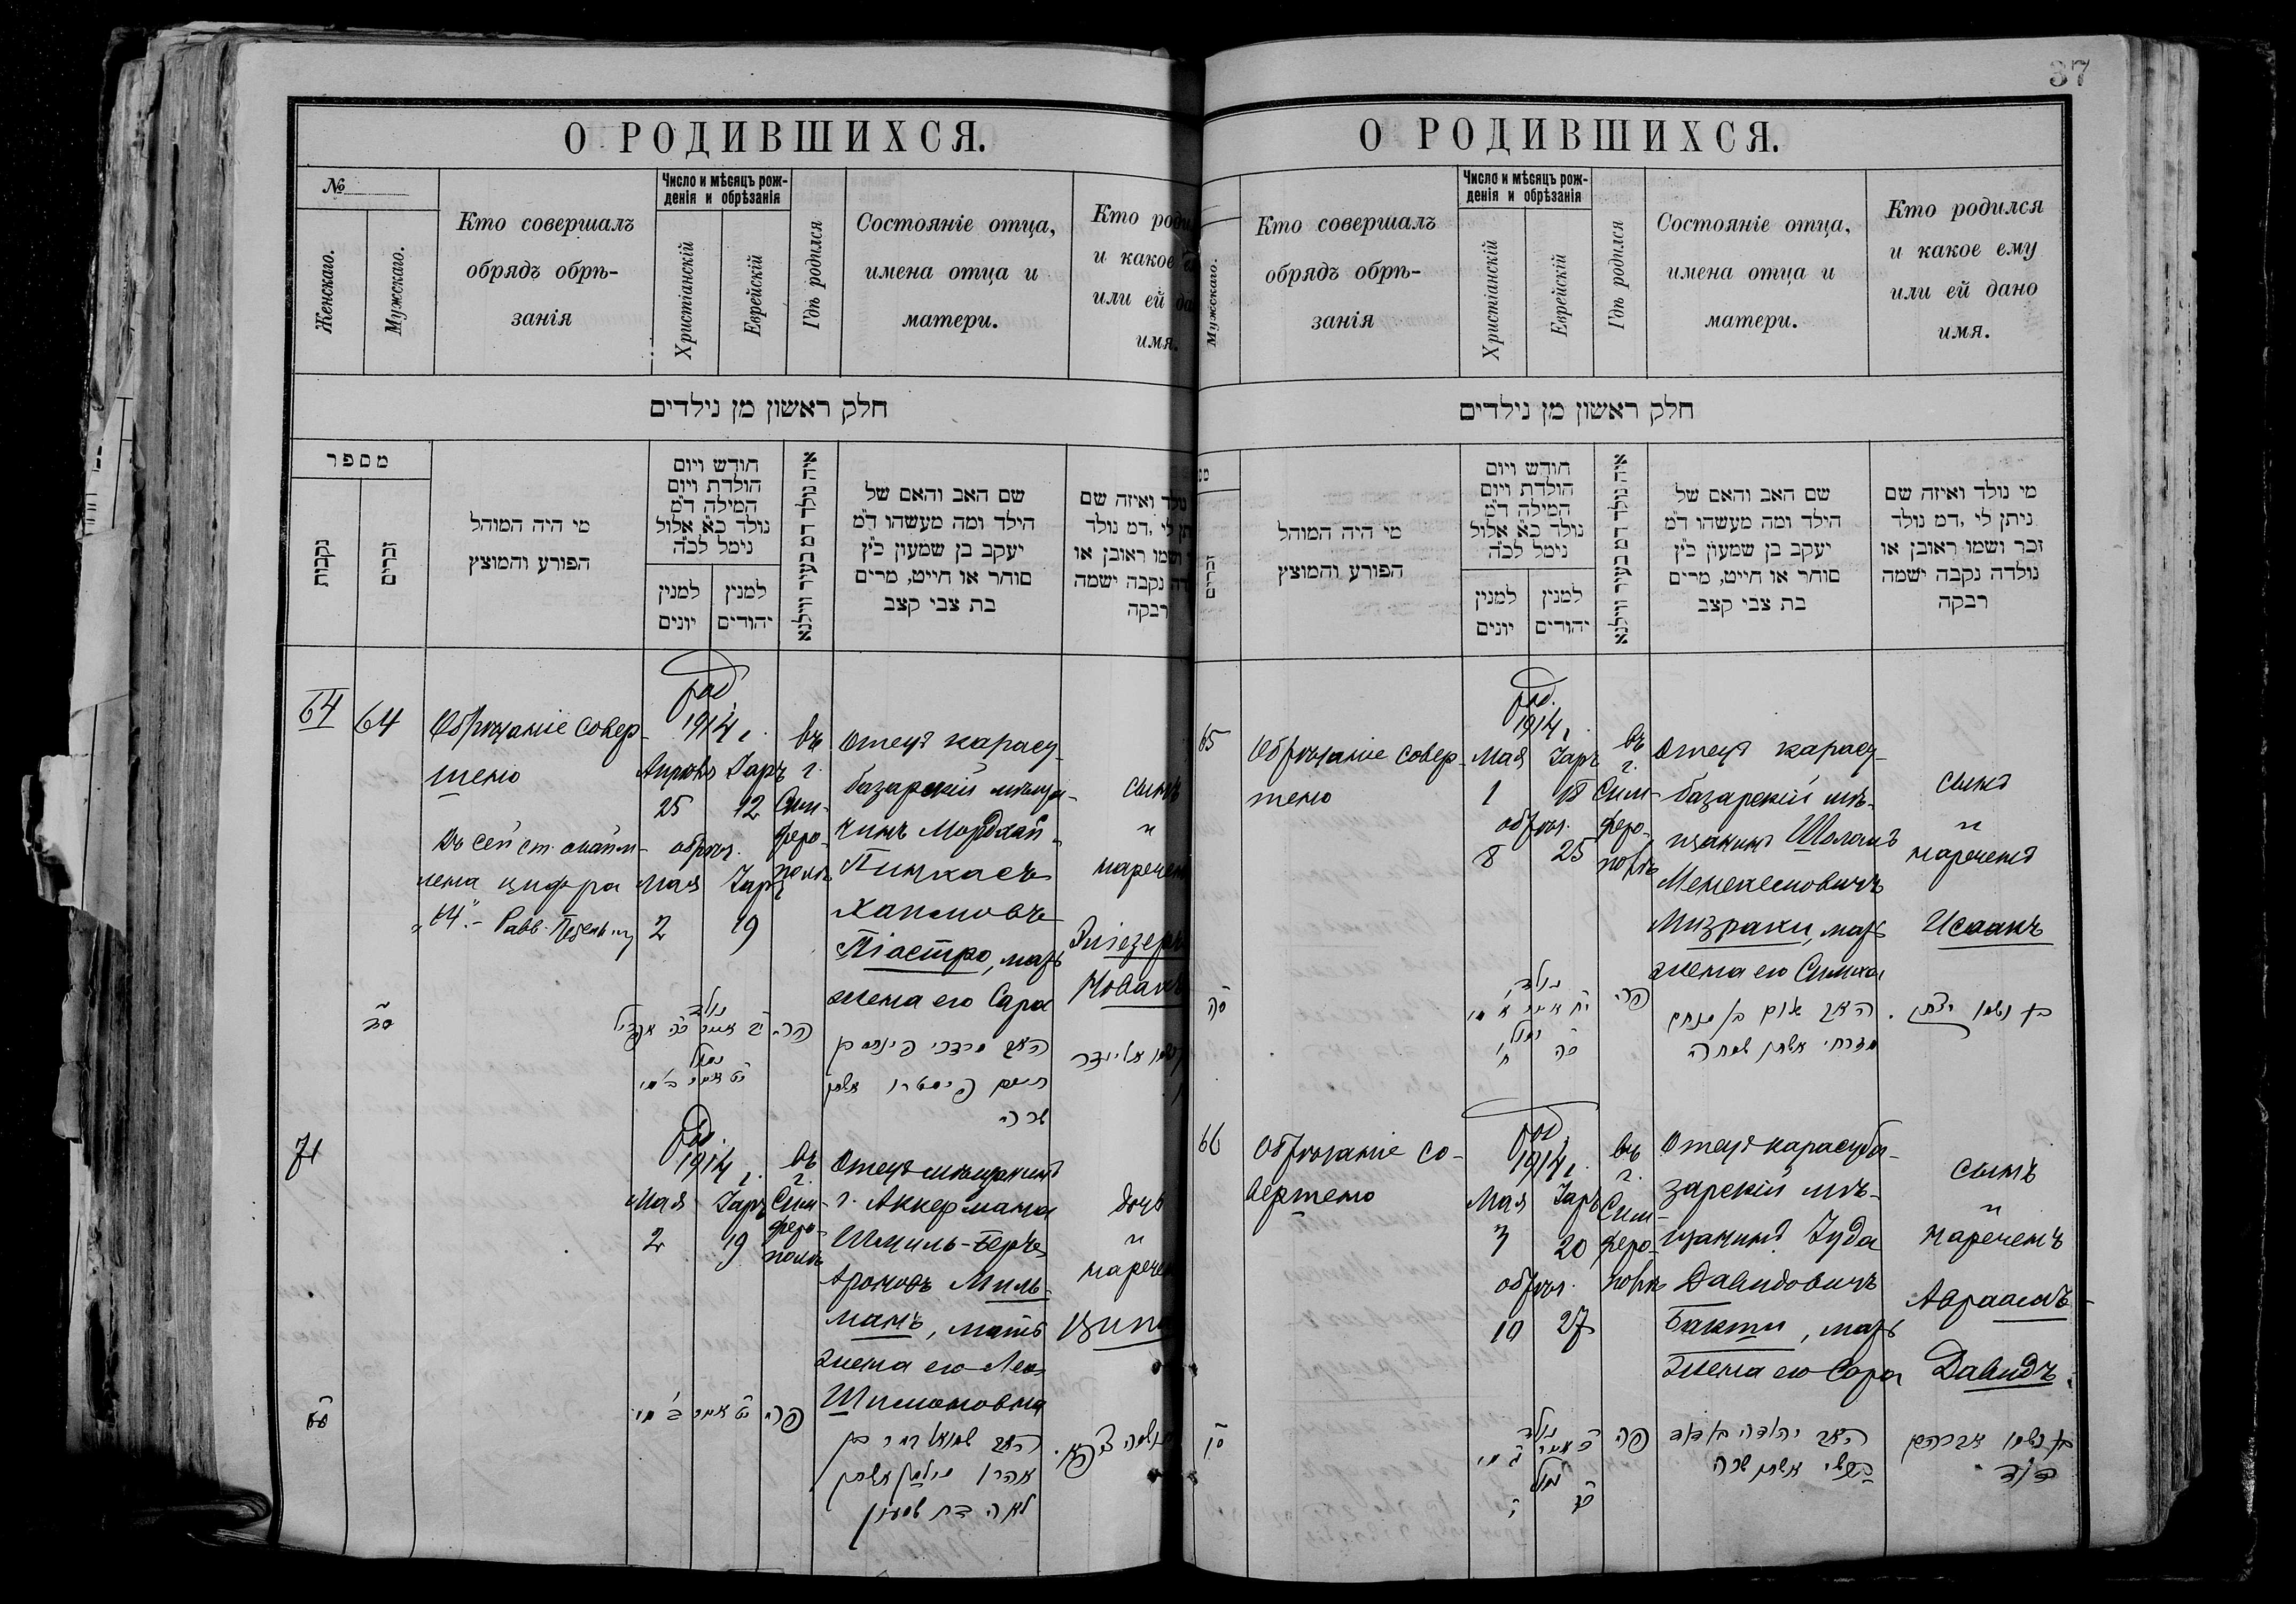 37
О РОДИВШИХСЯ.
№
Женскаго.
Мужскаго.
Кто совершалъ
обрядъ обрѣ-
занія
Число и мѣсяцъ рож-
денія и обрѣзанія
Христіанскій
Еврейскій
Гдѣ родился
Состояніе отца,
имена отца и
матери.
Кто роди
и какое
или ей да
имя.
חלק ראשון מן נילדים
מספר
נקבות
זכרים
מי היה המוהל
הפורע והמוצץ
חודש ויום
הולדת ויום
המילה ד״מ
נולד כ״א אלול
נימל לכ״ה
למנין
יונים
למנין
יהודים
איה נולד דמ בעיר ווילנא
שם האב והאם של
הילד ומה מעשהו ד״מ
יעקב בן שמעון כ״ץ
סוחר או חייט, מרים
בת צבי קצב
נולד ואיזה שם
תן לי, דמ נולד
ושמו ראובן או
דה נקבה ישמה
רבקה
64
64
Обрѣзаніе совер-
шено
Въ сей ст.
цифра
„64“.- Рабв.
род.
1914 г.
Апрѣля
25
Іаръ
12
обрѣз.
Мая
2
Іаръ
19
въ
г.
Сим-
феро-
полѣ
Отецъ карасу-
базарскій мѣща-
нинъ Мордхай-
Пинхасъ
Хаимовъ
Піастро, мать
жена его Сара
сынъ
и
наречен
Эліезеръ
Новахъ
סד
נולד
נמול
פה
האב מרדכי פינחס בן
חיים פיסטרו אשתו
שרה
ושמו אליעזר
71
род.
1914 г.
Мая
2
Іаръ
19
въ
г.
Сим-
феро-
полѣ
Отецъ мѣщанинъ
г. Аккермана
Шмиль-Беръ
Ароновъ Миль-
манъ, мать
жена его Лея
Шимоновна
дочь
и
наречен
Ципа
פה
האב שמואל בר בן
אהרן מילמן אשתו
לאה בת שמעון
О РОДИВШИХСЯ.
Мужскаго.
Кто совершалъ
обрядъ обрѣ-
занія
Число и мѣсяцъ рож-
денія и обрѣзанія
Христіанскій
Еврейскій
Гдѣ родился
Состояніе отца,
имена отца и
матери.
Кто родился
и какое ему
или ей дано
имя.
חלק ראשון מן נילדים
זכרים
מי היה המוהל
הפורע והמוצץ
חודש ויום
הולדת ויום
המילה ד״מ
נולד כ״א אלול
נימל לכ״ה
למנין
יונים
למנין
יהודים
איה נולד דמ בעיר ווילנא
שם האב והאם של
הילד ומה מעשהו ד״מ
יעקב בן שמעון כ״ץ
סוחר או חייט, מרים
בת צבי קצב
מי נולד ואיזה שם
ניתן לי, דמ נולד
זכר ושמו ראובן או
נולדה נקבה ישמה
רבקה
65
Обрѣзаніе совер-
шено
род.
1914 г.
Мая
1
Іаръ
18
обрѣз.
8
25
въ
г.
Сим-
феро-
полѣ
Отецъ карасу-
базарскій мѣ-
щанинъ Шоломъ
Менехемовичъ
Мизрахи, мать
жена его Симха
сынъ
и
нареченъ
Исаакъ
סה
נולד
נמול
פה
האב שלום בן מנחם
מזרחי אשתו שמחה
בן ושמו יצחק.
66
Обрѣзаніе со-
вершено
род.
1914 г.
Мая
3
Іаръ
20
обрѣз.
10
27
въ
г.
Сим-
феро-
полѣ
Отецъ карасуба-
зарскій мѣ-
щанинъ Іуда
Давидовичъ
Бакши, мать
жена его Сара
сынъ
и
нареченъ
Авраамъ-
Давидъ.
סו
נולד
נמול
פה
האב יהודה בן דוד
בקשי אשתו שרה
בן ושמו אברהם
דוד